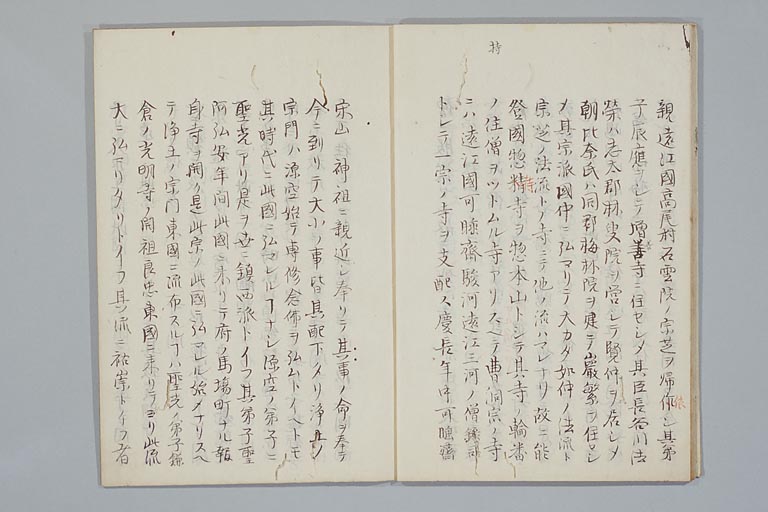 持
親遠江國高尾村石雲院ノ宗芝ヲ帰依シ其弟
依
子辰應ヲシテ増善寺ニ住セシメ其臣長谷川法
榮ハ志太郡林叟院ヲ営シテ賢仲ヲ居シメ
朝比奈氏ハ同郡梅林院ヲ建テ巖繁ヲ住セシ
メ其宗派國仲ニ弘マリテ大カタ如仲ノ法流ト
宗芝ノ法流トノ寺ニテ他ノ流ハマレナリ故ニ能
登國惣持寺ヲ惣本山トシテ其寺ノ輪番
持
ノ住僧ヲツトムル寺ヤリスヘテ曹洞宗ノ寺
ニハ遠江國可睡齋駿河遠江三河ノ僧録司
トシテ一宗ノ寺ヲ支配ス慶長年中可睡齋
宗山 神祖ニ親近シ奉リテ其事ノ命ヲ奉テ
今ニ到リテ大小ノ事皆其配下タリ浄土ノ
宗門ハ源空始テ専修念佛ヲ弘ムトイヘトモ
其時代ニ此國ニ弘マレルヿナシ源空ノ弟子ニ
聖光アリ是ヲ世ニ鎮西派トイフ其弟子聖
阿弘安年間此國ニ来リテ府ノ馬場町ナル報
身寺ヲ開ク是此宗ノ此國ニ弘マレル始メナリスヘ
テ浄土ノ宗門東國ニ流布スルヿハ聖光ノ弟子鎌
倉ノ光明寺ノ開祖良忠東國ニ来リテヨリ此流
大ニ弘マリタリトイフ其流ニ祐崇トイフ者